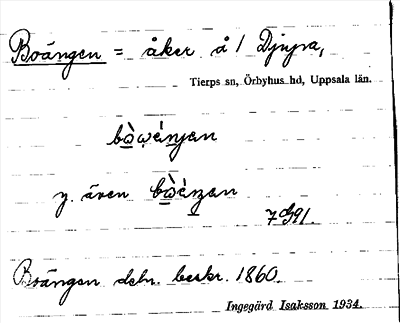 Boängen = åker å / Djupa,
Tierps sn, Örbyhus hd, Uppsala län.
bòwéṇjan
y. även bòéŋan
Boängen deln. beskr. 1860.
Ingegärd Isaksson 1934.